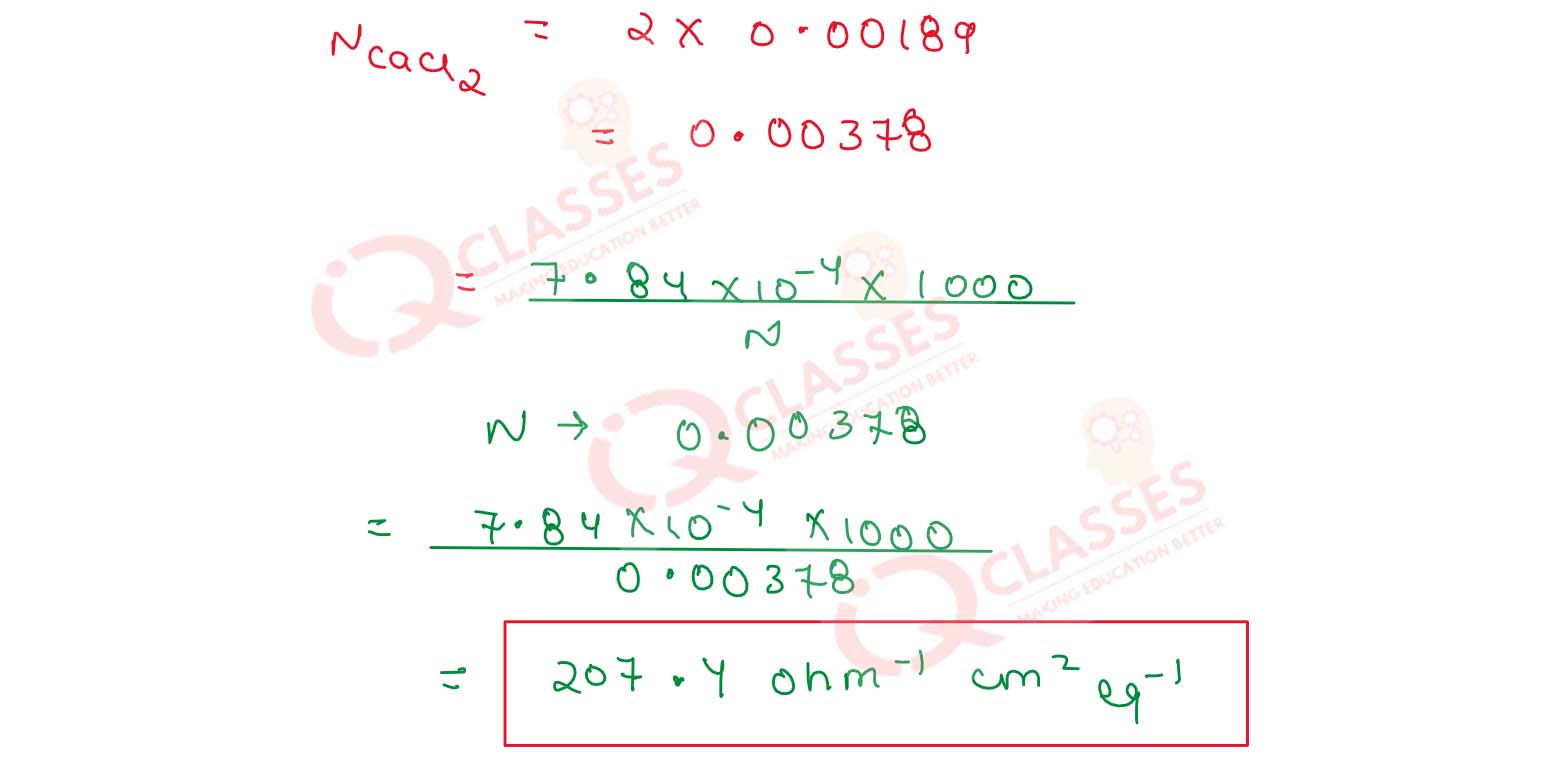 N CaCl2 = 2 × 0.00189
= 0.00378
= 7.84 × 10⁻⁴ × 1000
N
N → 0.00378
= 7.84 × 10⁻⁴ × 1000
0.00378
= 207.4 ohm⁻¹ cm² eq⁻¹
iQ CLASSES
MAKING EDUCATION BETTER
iQ CLASSES
MAKING EDUCATION BETTER
iQ CLASSES
MAKING EDUCATION BETTER